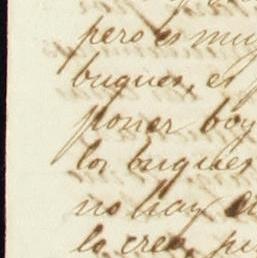 pero es muy
buques, es
poner boy
los buques
no hay
lo creo, pu